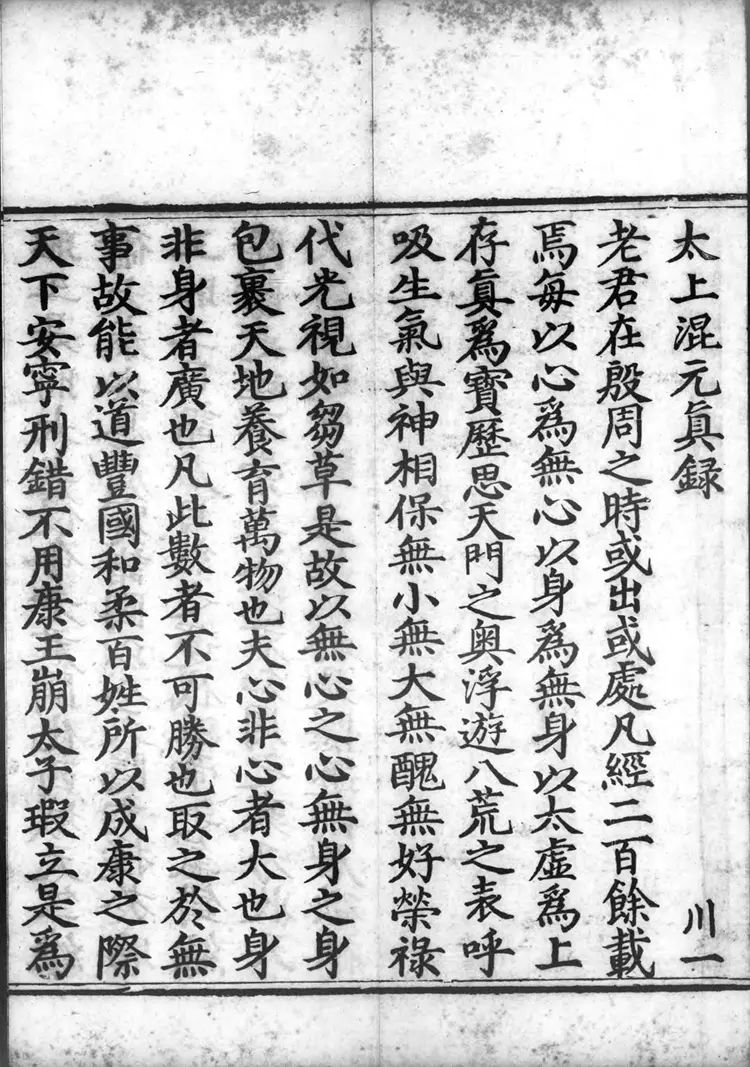 太上混元真録
川一
老君在殷周之時或出或處凡經二百餘載
焉每以心為無心以身為無身以太虛為上
存真為寶歷思天門之奥浮遊八荒之表呼
吸生氣與神相保無小無大無醜無好榮祿
代光視如芻草是故以無心之心無身之身
包裹天地養育萬物也夫心非心者大也身
非身者廣也凡此數者不可勝也取之於無
事故能以道豐國和柔百姓所以成康之際
天下安寧刑錯不用康王崩太子瑕立是為